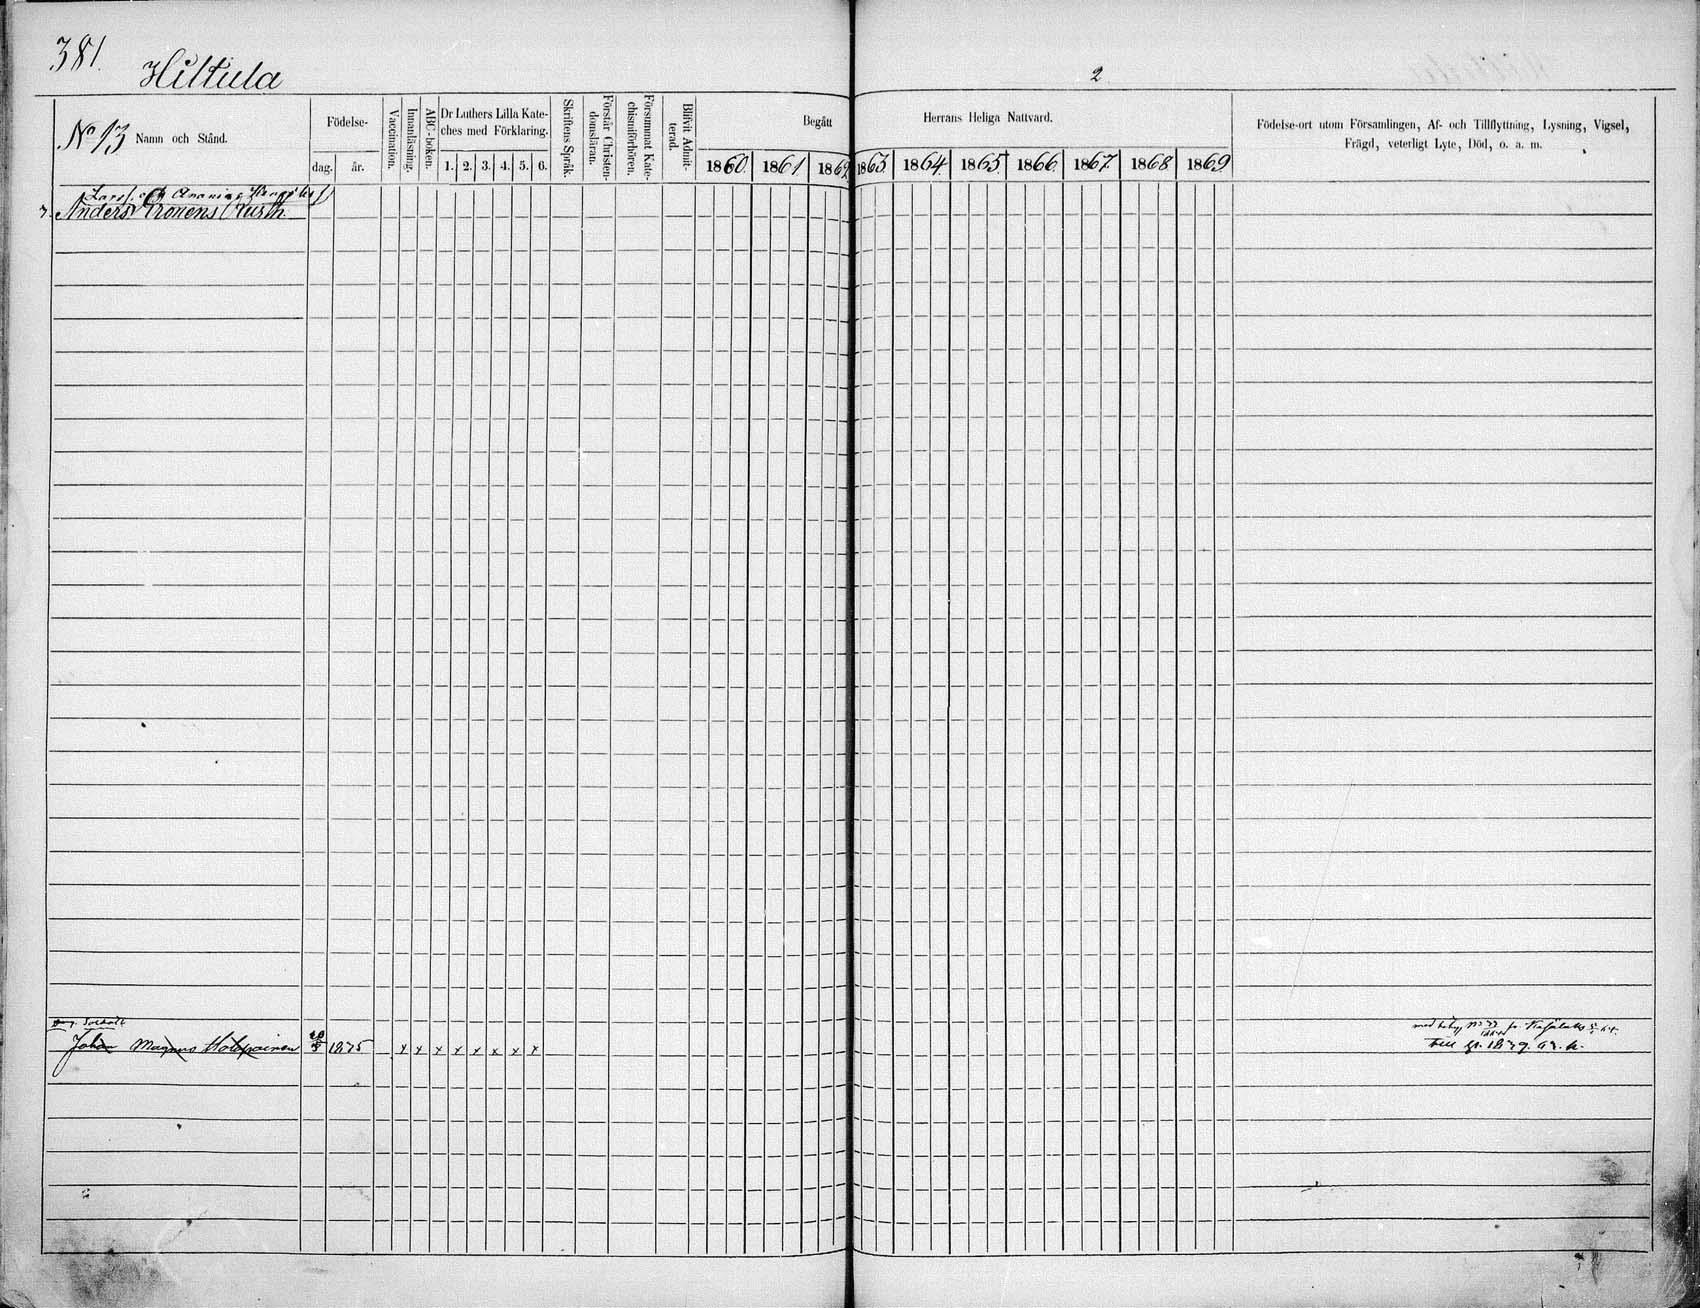 381.
Hiltula
2
No 13 Namn och Stånd.
Födelse-
dag. år.
Vaccination.
Innanläsning.
ABC-boken.
Dr Luthers Lilla Kate-
ches med Förklaring.
1. 2. 3. 4. 5. 6.
Skriftens Språk.
Förstår Christen-
domsläran.
Försummat Kate-
chismiförhören.
Blifvit Admit-
terad.
Begått Herrans Heliga Nattvard.
1860. 1861 1862 1863. 1864. 1865 1866. 1867. 1868 1869
Födelse-ort utom Församlingen, Af- och Tillflyttning, Lysning, Vigsel,
Frägd, veterligt Lyte, Död, o. a. m.
Anders
Johan Magnus Holopainen 1835 x x x x x x x x
till